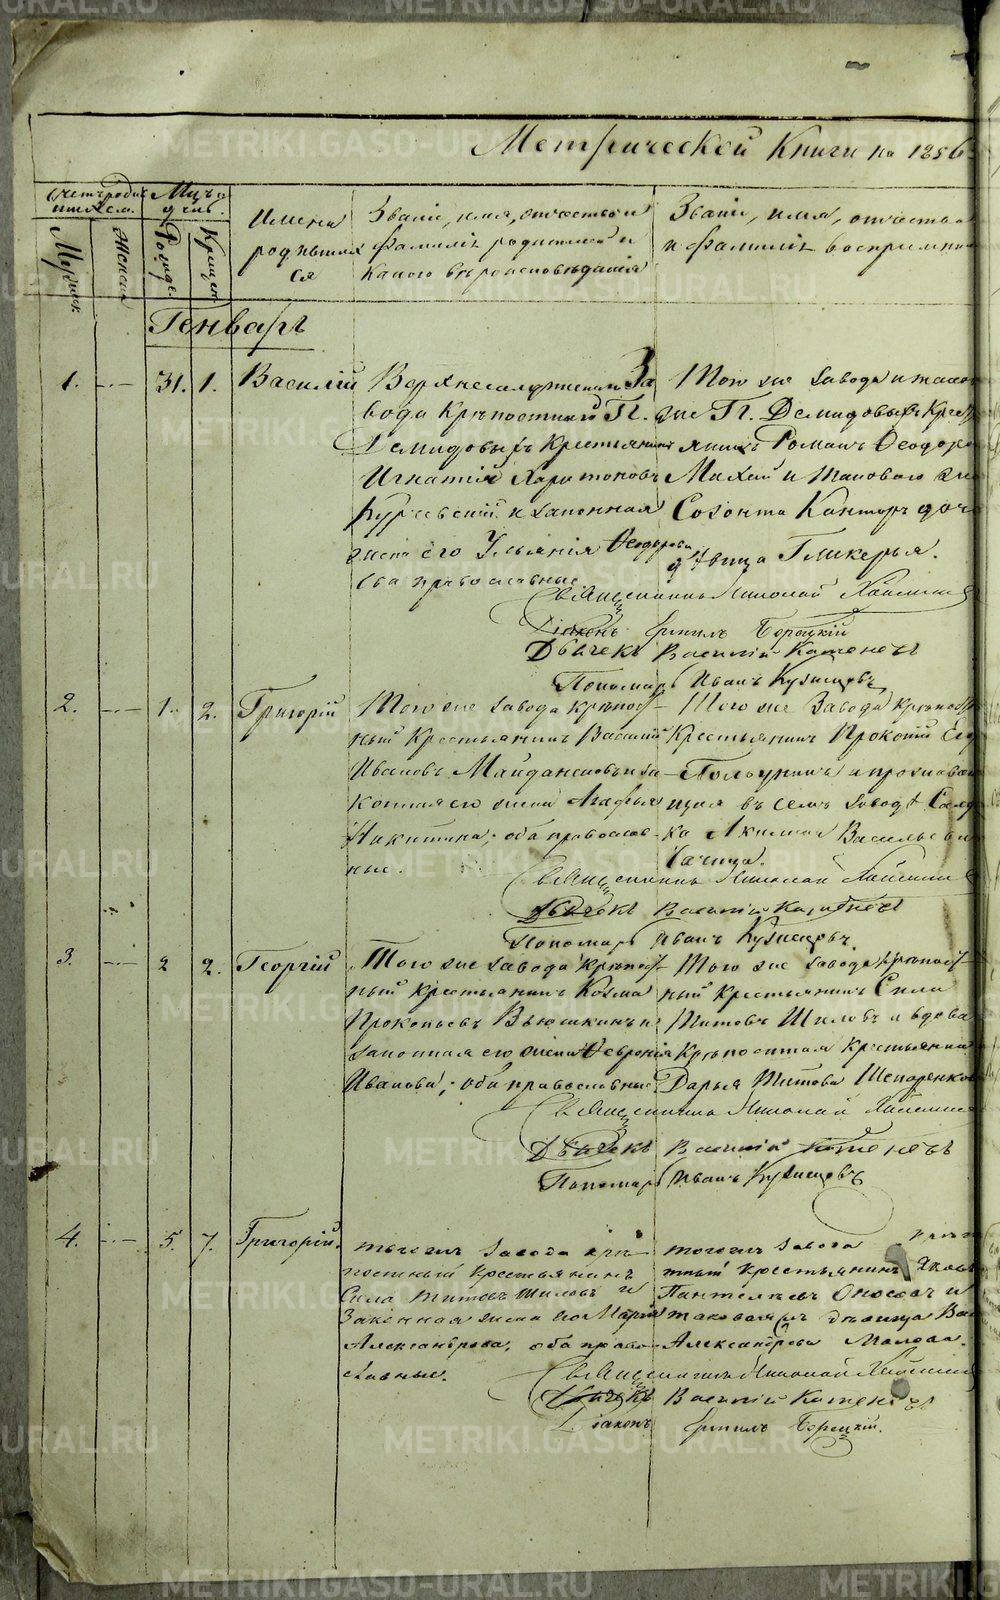 Метрической Книги на 1856
Счетъ родив
шихся.
Мѣсяцъ и
день.
Имена
родивших
ся
Званіе, имя, отчество и
фамилія родителей и
какого вѣроисповѣданія
Званіе, имя, отчество
и фамилія воспріемни
Мужеск
Женск
Рожде.
Крещен.
Генварь
1. 31. 1. Василій
Верхнесалдинскаго За
вода крѣпостный Гг.
Демидовыхъ крестьянинъ
Игнатій Харитоновъ
и законная
жена его Ульянія Ѳеодорова
оба православные
Того же завода и таков
же Гг. Демидовыхъ крест
янинъ Романъ Ѳеодоро
и таковаго же
Созонта Кантор доч
дѣвица Гликерья.
Священникъ Николай
Діаконъ Борецкій
Дьячекъ Василій Катеневъ
Пономарь Иванъ Кузнецовъ
2. 1. 2. Григорій
Того же завода крѣпост
ный крестьянинъ Василій
Ивановъ Майдансковъ и за
конная его жена Агафья
Никитина; оба православ
ные.
Того же завода крѣпост
крестьянинъ Прокопій
и проживаю
щая въ семъ заводѣ Салд
ка Акилина Васильевна
Священникъ Николай
Дьячекъ Василій Катеневъ
Пономарь Иванъ Кузнецовъ.
3. 2 2. Георгій
Того же завода крѣпост
ный крестьянинъ Козма
Прокопьевъ Вьюшкинъ и
законная его жена Ѳевронія
Иванова; оба православные
Того же завода крѣпост
ный крестьянинъ Сила
Титовъ Шиловъ и вдова
крѣпостная крестьянка
Дарья Титова Шепоренков
Священникъ Николай
Дьячекъ Василій Катеневъ
Пономарь Иванъ Кузнецовъ
4. 5. 7. Григорій.
завода крѣ
постный крестьянинъ
Сила Титовъ Шиловъ и
Законная жена его Марія
Александрова, оба право
славные.
завода крѣпо
тный крестьянинъ Яковъ
Пантелеевъ и
дѣвица Ва
Александрова
Священникъ Николай
Дьячекъ Василій Катеневъ
Діаконъ Борецкій.